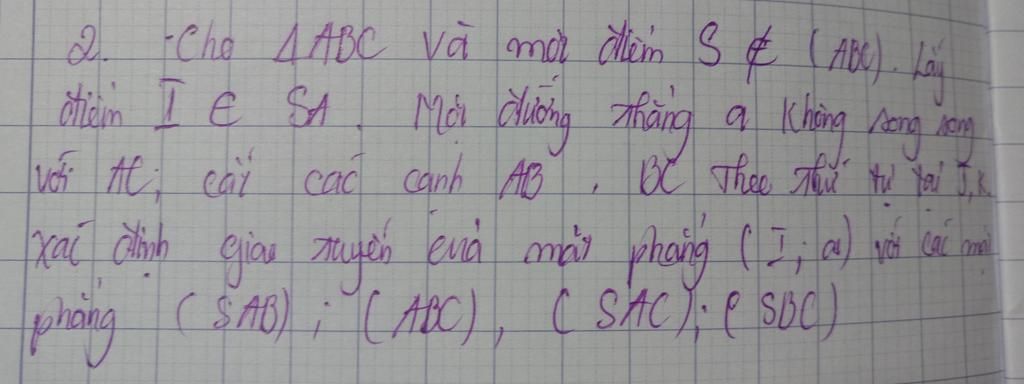 2. -Cho ΔABC và một điểm S ∉ (ABC). Lấy
điểm I ∈ SA. Một đường thẳng a không song song
với AC, cắt các cạnh AB, BC theo thứ tự tại J, K.
Xác định giao tuyến của mặt phẳng (I; a) với các mặt
phẳng (SAB); (ABC), (SAC); (SBC)